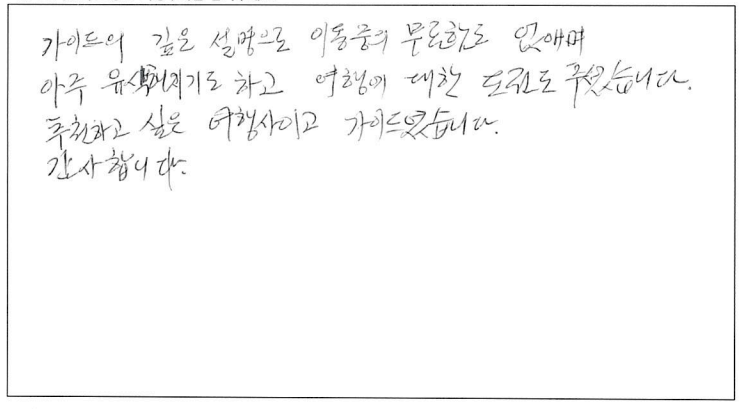 가이드의 깊은 설명으로 이동중의 무료함도 없애며
아주 유식해지기도 하고 여행에 대한 도전도 주셨습니다.
추천하고 싶은 여행사이고 가이드였습니다.
감사합니다.